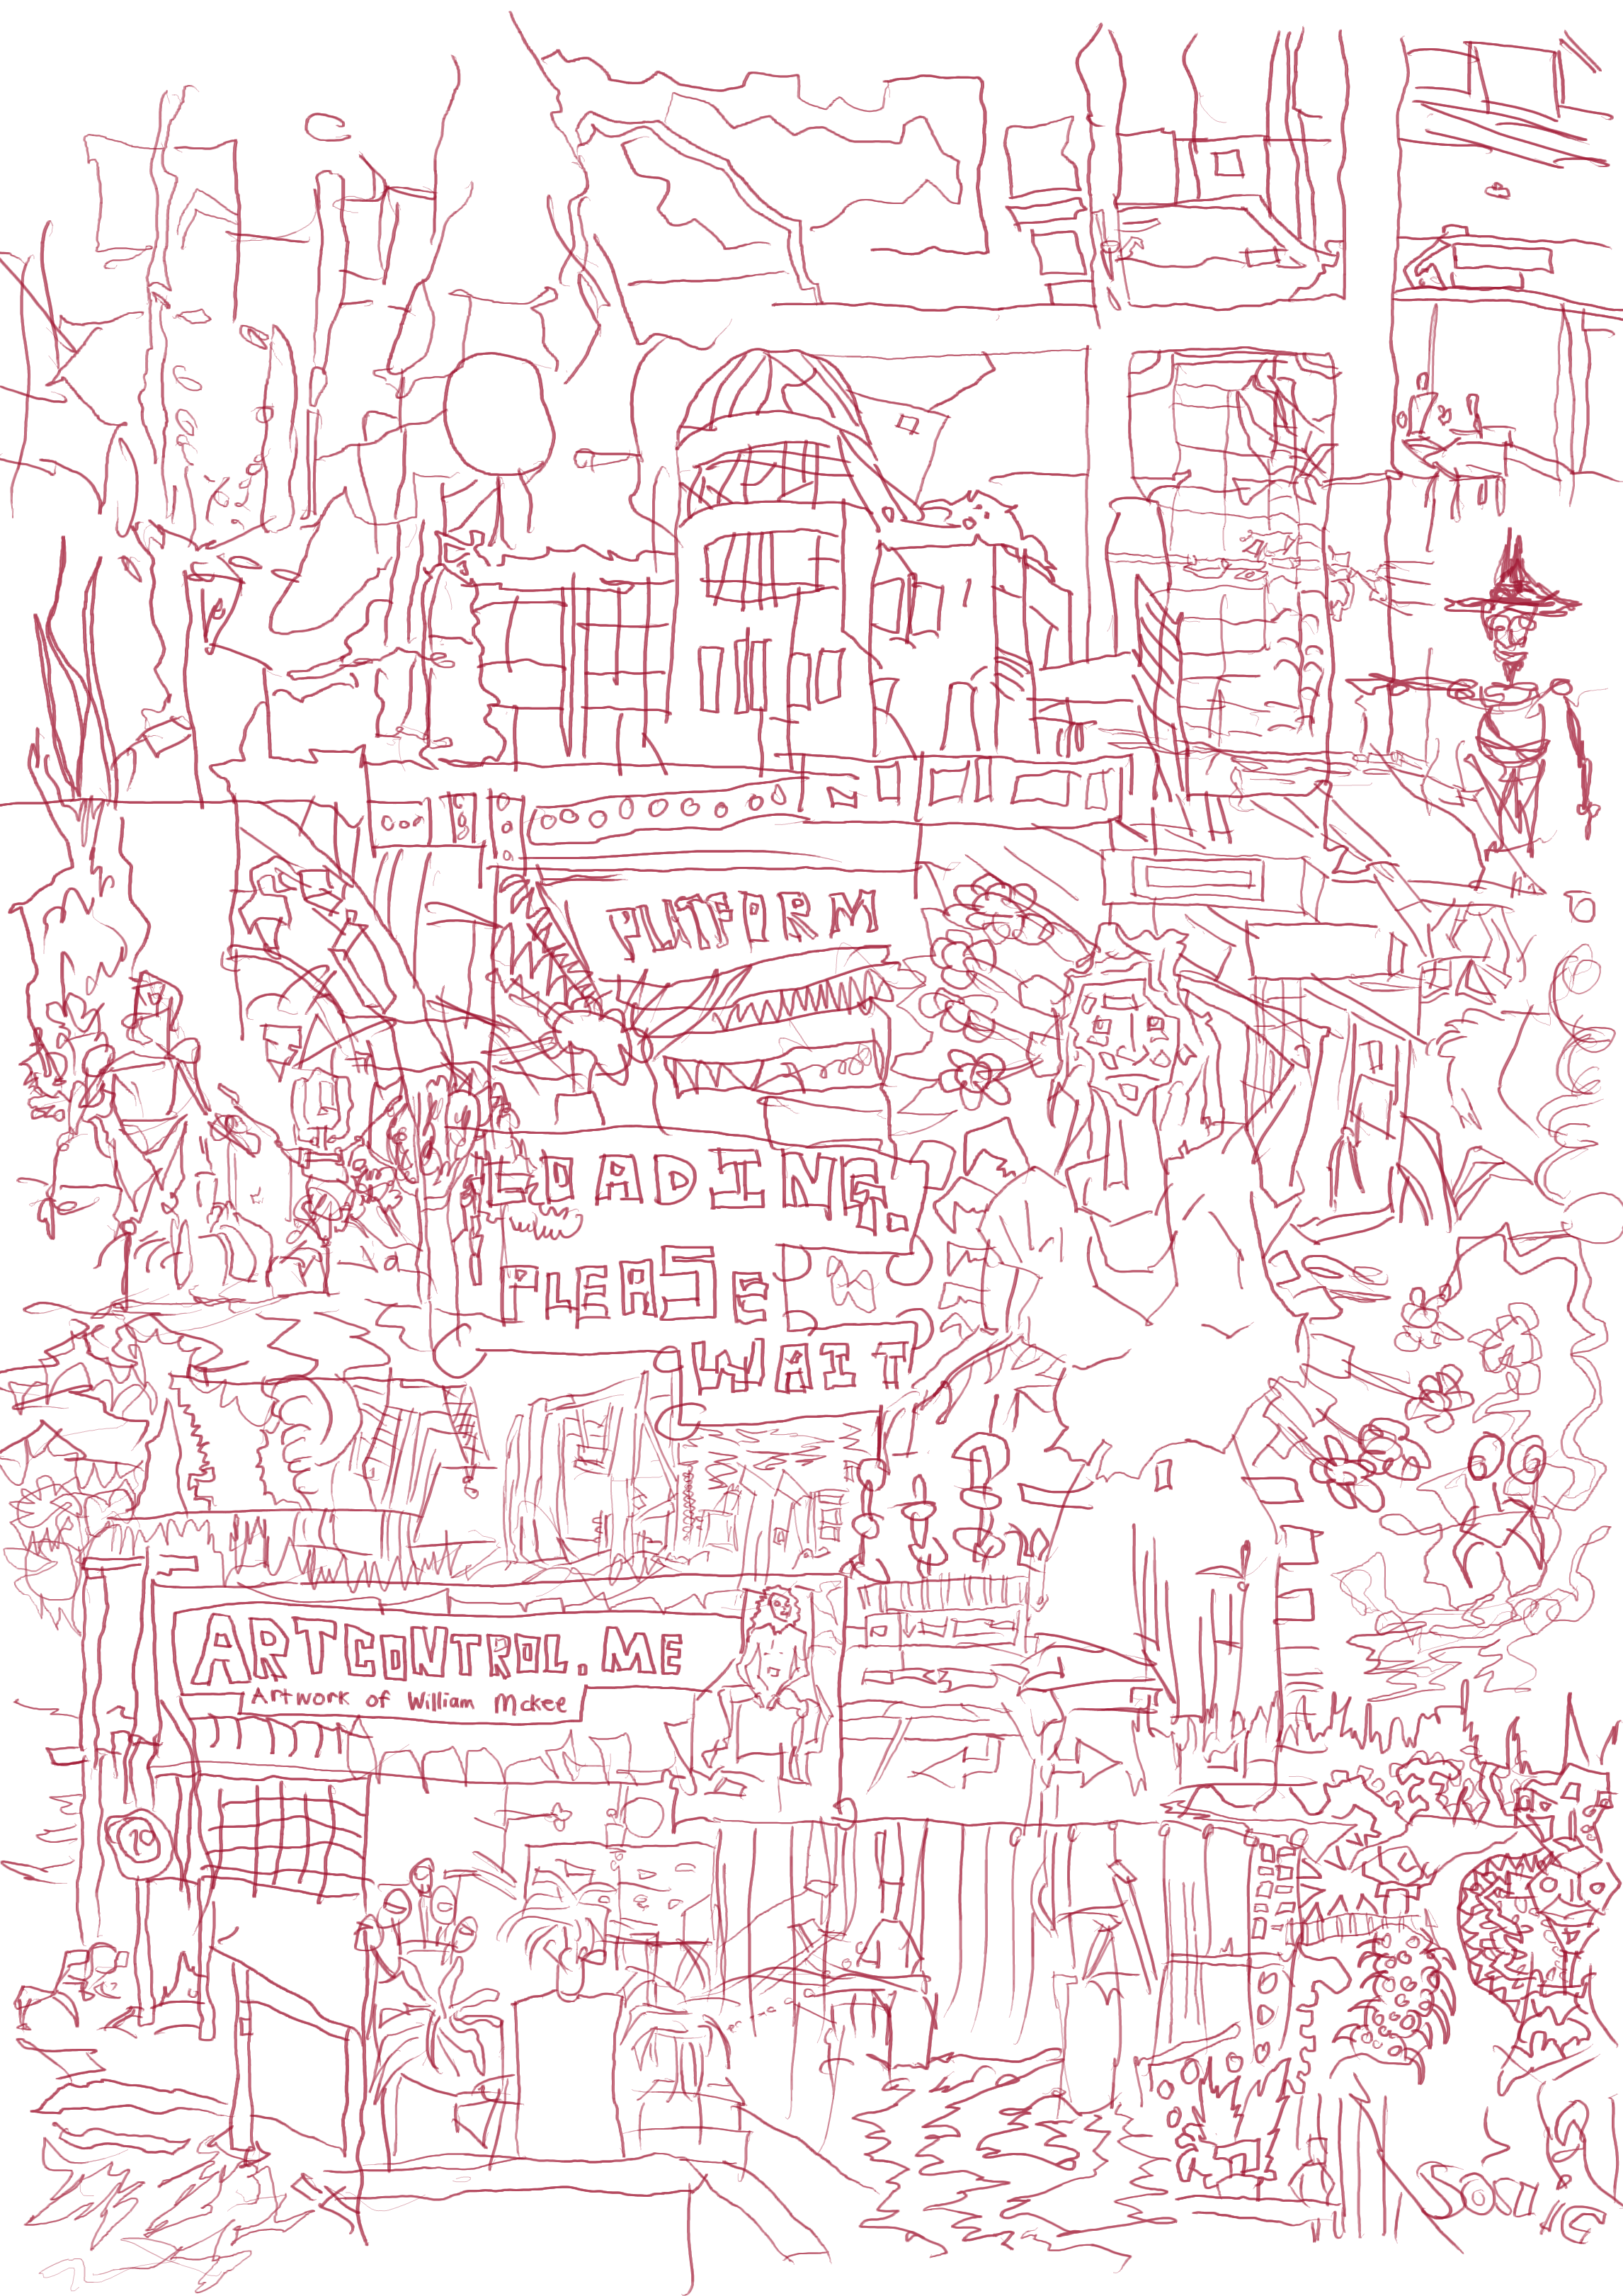 PLATFORM
LOADING.
PLEASE
WAIT
ARTCONTROL.ME
Artwork of William Mckee